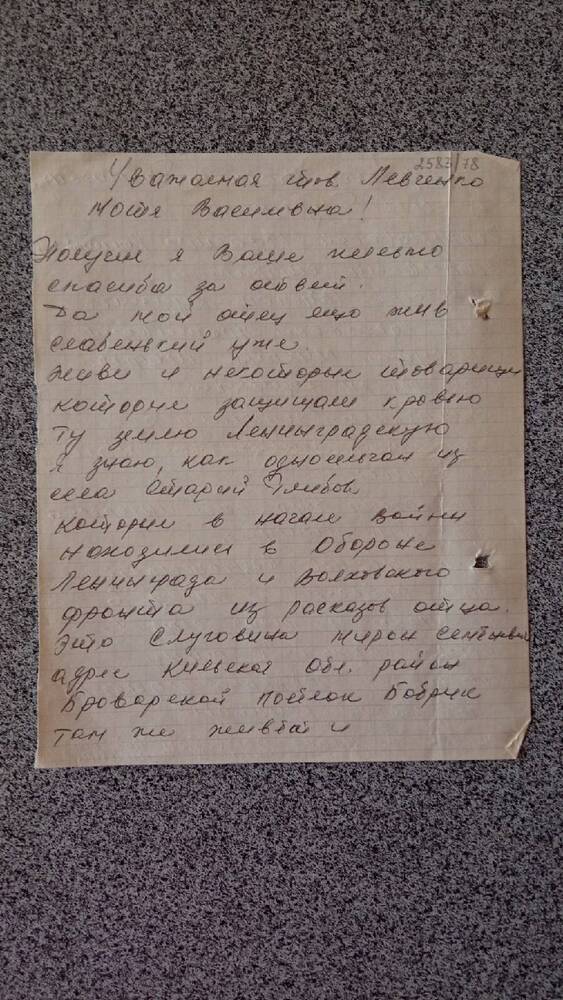 2583/78
Уважаемая тов. Левченко
Мотя Васильевна!
Получил я Ваше письмо
спасибо за ответ.
Да мой отец ещо жив
слабенький уже.
Живи и некоторые товарищи
которые защищали кровью
ту землю Ленинградскую
я знаю, как односельчан из
села Старий Глибов,
которые в начале войни
находились в Обороне
Ленинграда и Волховского
фронта из расказов отца.
Это Слуговина Мирон
адрес Киевская обл. район
Броварской посёлок Бобрик
там же живёт и